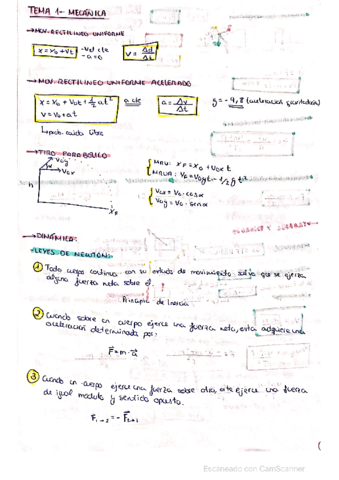 TEMA 1- MECÁNICA
→MOV. RECTILINEO UNIFORME
x = x0 + Vt -Vel cte -a=0 V = Δd/Δt
→MOV. RECTILINEO UNIFORME ACELERADO
x = x0 + V0t + 1/2 at² a cte a = Δv/Δt g = -9,8 (aceleración gravitatoria)
V = V0 + at
caida libre
→TIRO PARABOLICO
V0y
V0x
MRU: xF = x0 + V0x t
V0x = V0·cosα
V0y = V0·senα
xF
→DINÁMICA:
LEYES DE NEWTON:
① Todo cuerpo continua con su estado de movimiento salvo que se ejerza
alguna fuerza neta sobre él.
Principio de Inercia
② Cuando sobre un cuerpo ejerce una fuerza neta, esta adquiere una
aceleración determinada por:
F = m · a
③ Cuando un cuerpo ejerce una fuerza sobre otro, este ejerce una fuerza
de igual modulo y sentido opuesto.
F1→2 = - F2→1
Escaneado con CamScanner